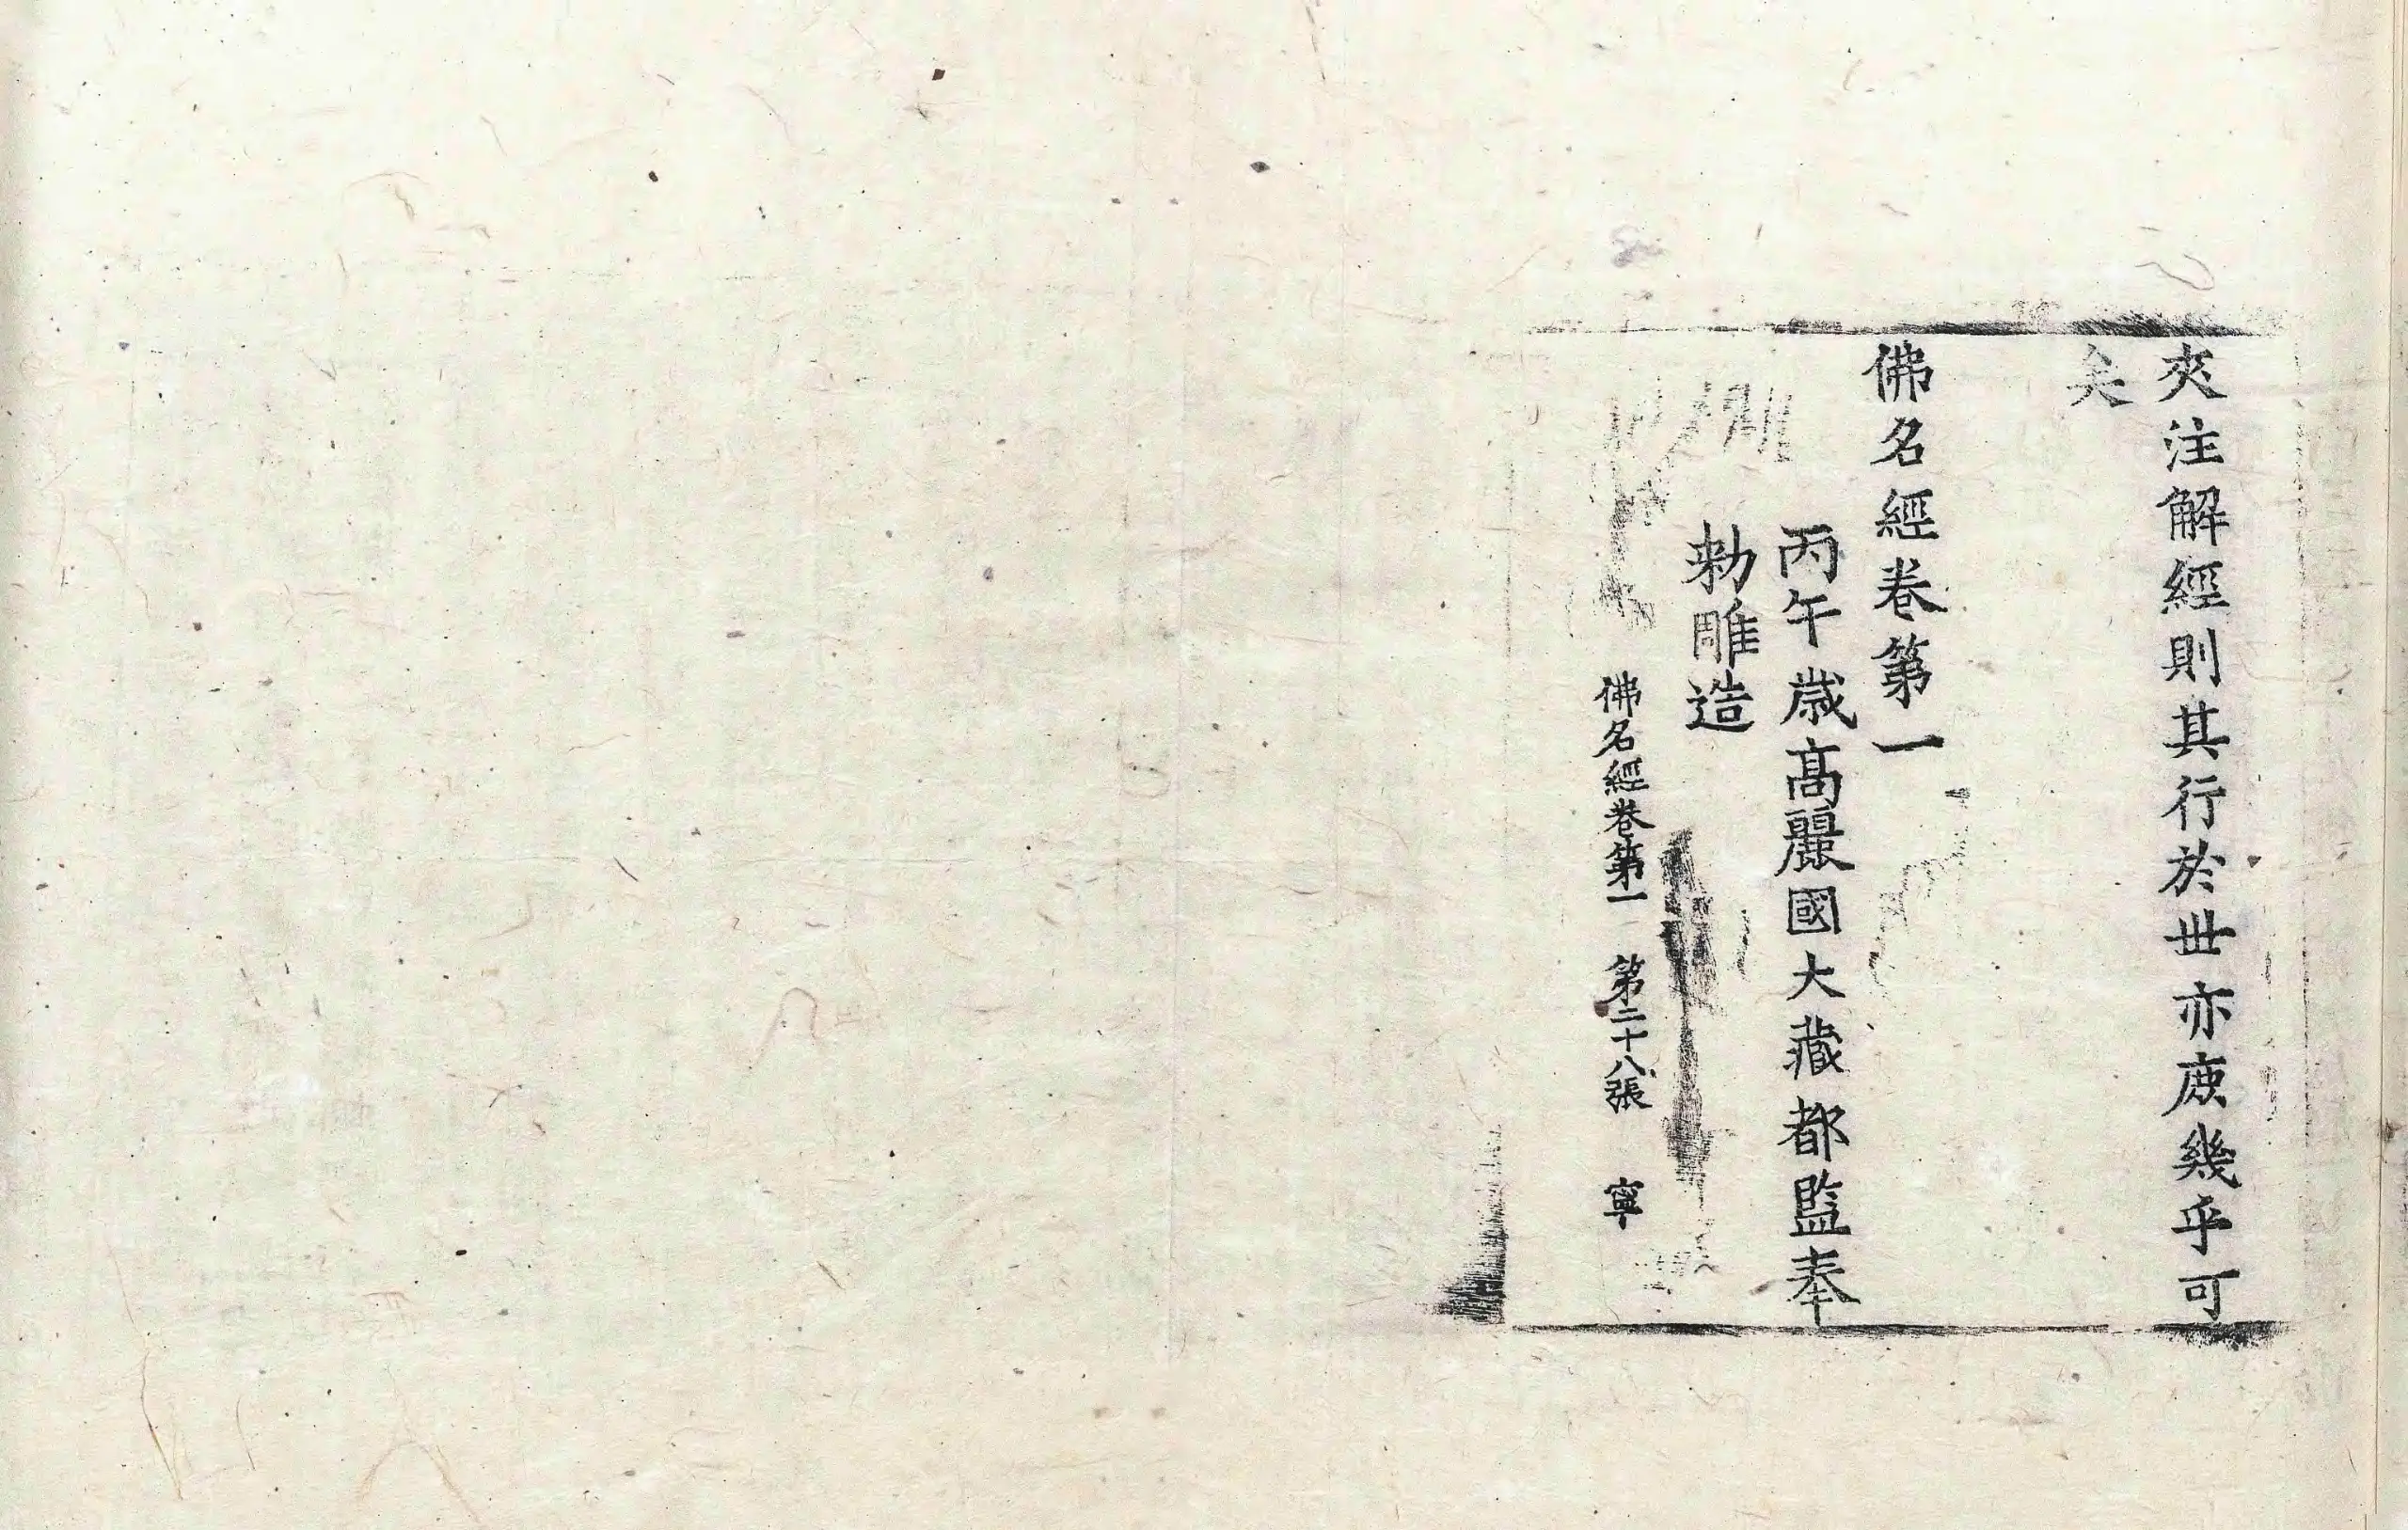 夾注解經則其行於世亦庻幾乎可
矣
佛名經卷第一
丙午歲高麗國大藏都監奉
勅雕造
佛名經卷第一 第二十八張 寧